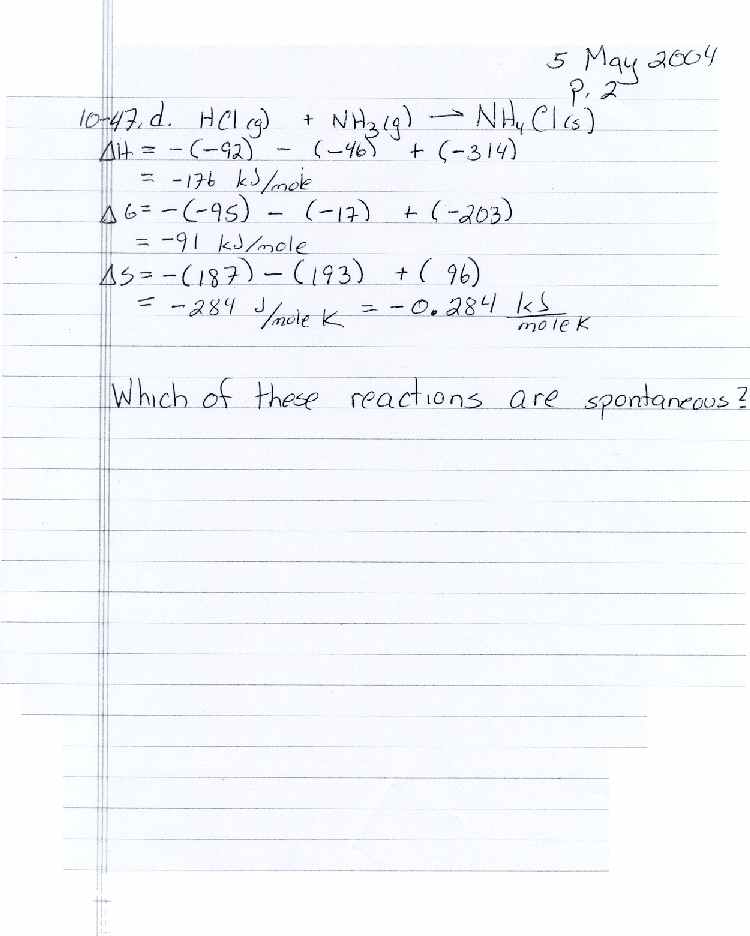 5 May 2004
P. 2
10-47. d. HCl (g) + NH₃(g) → NH₄Cl(s)
ΔH = -(-92) - (-46) + (-314)
= -176 kJ/mole
ΔG = -(-95) - (-17) + (-203)
= -91 kJ/mole
ΔS = -(187) - (193) + ( 96)
= -284 J/mole K = -0.284 kJ/mole K
Which of these reactions are spontaneous?